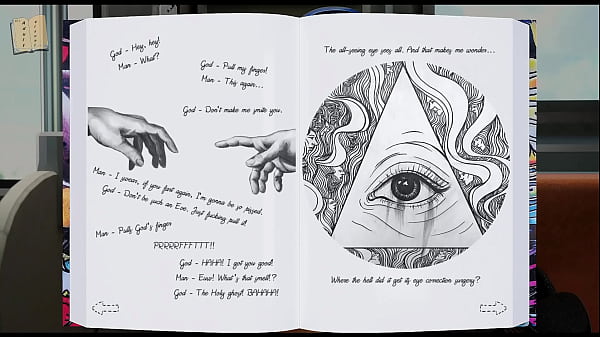 God - Hey, hey!
Man - What?
God - Pull my finger!
Man - This again...
God - Don't make me smite you.
Man - I swear, if you fart again, I'm gonna be so pissed.
God - Don't be such an Eve. Just fucking pull it!
Man - Pulls God's finger
PRRRRFFFTTT!!
God - HAHA! I got you good!
Man - Eww! What's that smell!?
God - The Holy ghost! BAHAHA!
The all-seeing eye sees all. And that makes me wonder...
Where the hell did it get its eye correction surgery?